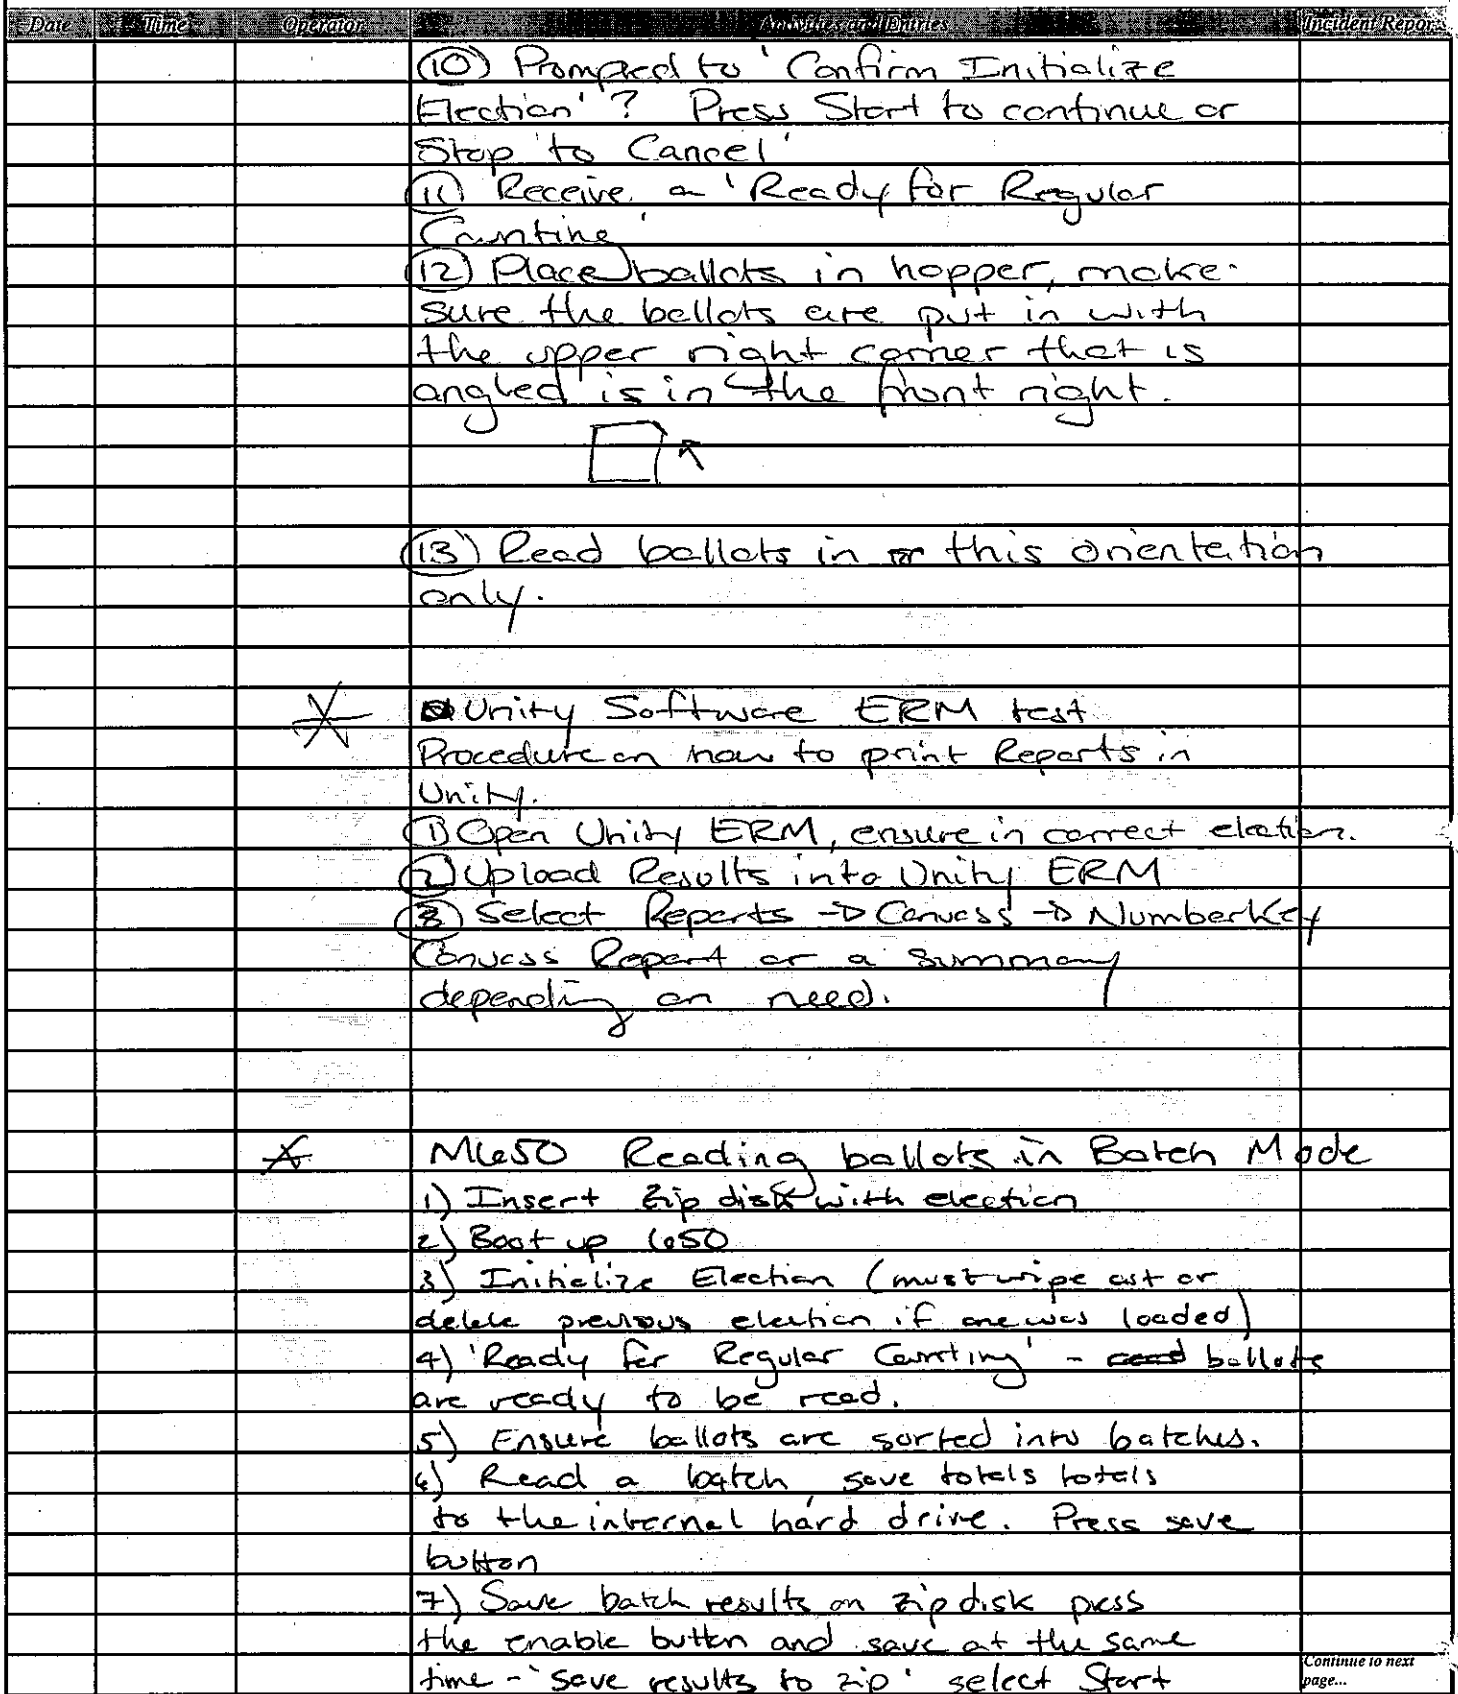 Date Time Operator Activities and Entries Incident Report
(10) Prompted to 'Confirm Initialize
Election'? Press Start to continue or
Stop to Cancel'
(11) Receive a 'Ready for Regular
Counting'
(12) Place ballots in hopper, make
sure the ballots are put in with
the upper right corner that is
angled is in the front right.
(13) Read ballots in this orientation
only.
Unity Software ERM test
Procedure on how to print Reports in
Unity.
(1) Open Unity ERM, ensure in correct election.
(2) Upload Results into Unity ERM
(3) Select Reports → Canvass → NumberKey
Canvass Report or a summary
depending on need.
M650 Reading ballots in Batch Mode
1) Insert zip disk with election
2) Boot up 650
3) Initialize Election (must wipe out or
delete previous election if one was loaded)
4) 'Ready for Regular Counting' - ballots
are ready to be read.
5) Ensure ballots are sorted into batches.
6) Read a batch, save totals totals
to the internal hard drive. Press save
button
7) Save batch results on zip disk press
the enable button and save at the same
time - 'save results to zip' select Start
Continue to next
page...